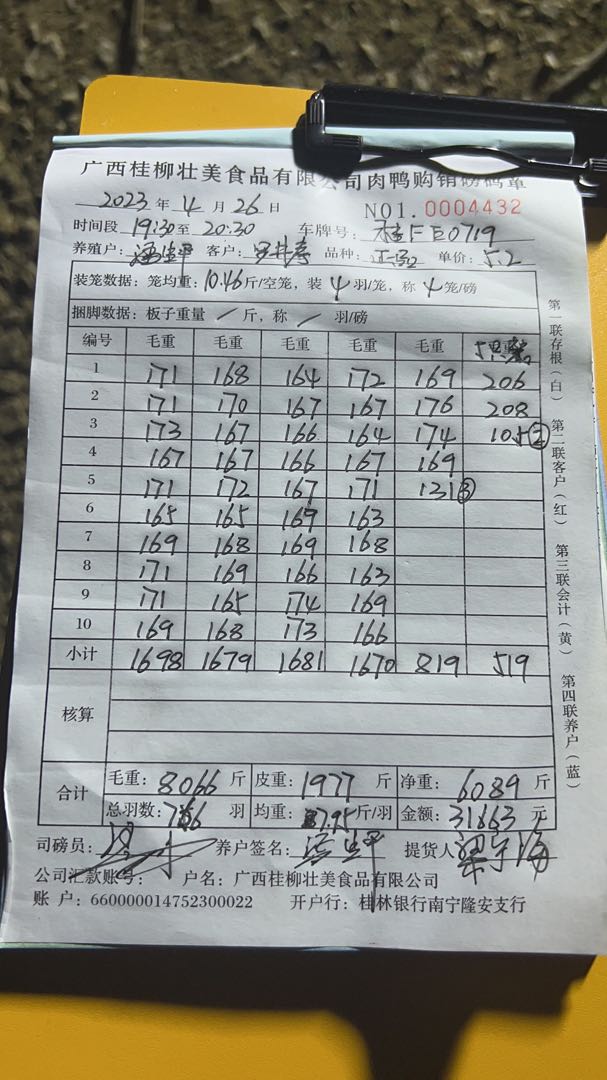 广西桂柳壮美食品有限公司肉鸭购销磅码单
2023 年 4 月 26 日 NO1.0004432
时间段 19:30 至 20:30 车牌号: 0719
养殖户: 客户: 品种: 单价: 5.2
装笼数据: 笼均重: 10.46 斤/空笼, 装 4 羽/笼, 称 4 笼/磅
捆脚数据: 板子重量 / 斤, 称 / 羽/磅
编号 毛重 毛重 毛重 毛重 毛重
1 171 168 164 172 169 206
2 171 170 167 167 176 208
3 173 167 166 164 174 105②
4 167 167 166 167 169
5 171 172 167 171 131③
6 165 165 169 163
7 169 168 169 168
8 171 169 166 163
9 171 165 174 169
10 169 168 173 166
小计 1698 1679 1681 1670 819 519
核算
合计 毛重: 8066 斤 皮重: 1977 斤 净重: 6089 斤
总羽数: 羽 均重: 7.95 斤/羽 金额: 31663 元
司磅员: 养户签名: 提货人
公司汇款账号: 户名: 广西桂柳壮美食品有限公司
账 户: 660000014752300022 开户行: 桂林银行南宁隆安支行
第一联存根(白) 第二联客户(红) 第三联会计(黄) 第四联养户(蓝)